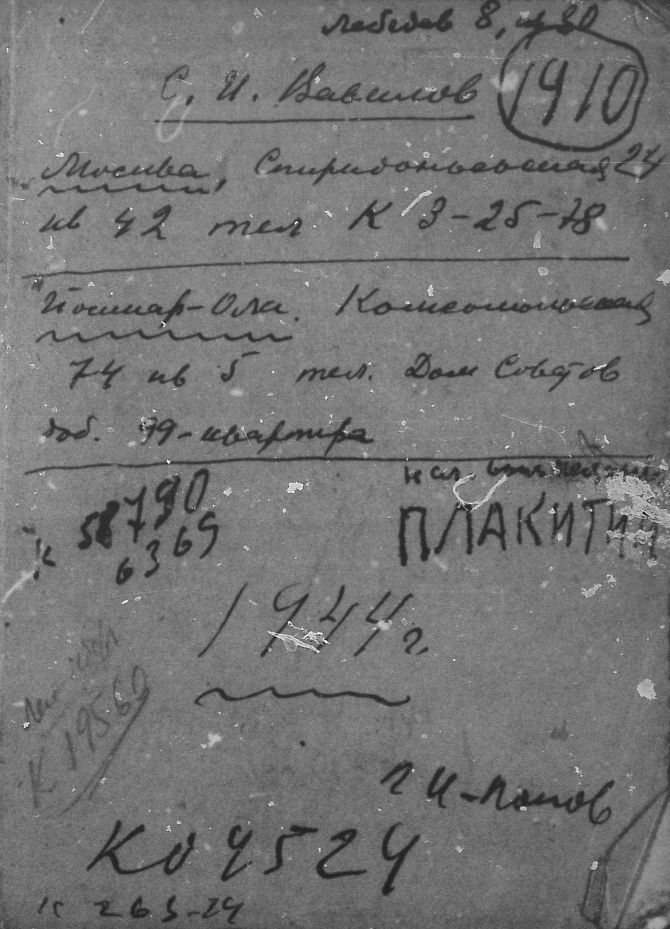 Лебедев 8, кв 80
С. И. Вавилов 1910
Москва, Спиридоньевская 24
кв 42 тел К 3-25-78
Йошкар-Ола. Комсомольская
74 кв 5 тел. Дом Советов
доб. 99-квартира
нач.
К 58790
6369
ПЛАКИТИН
1944 г.
К 19560
П И-Попов
К 0 95 24
К 263-24